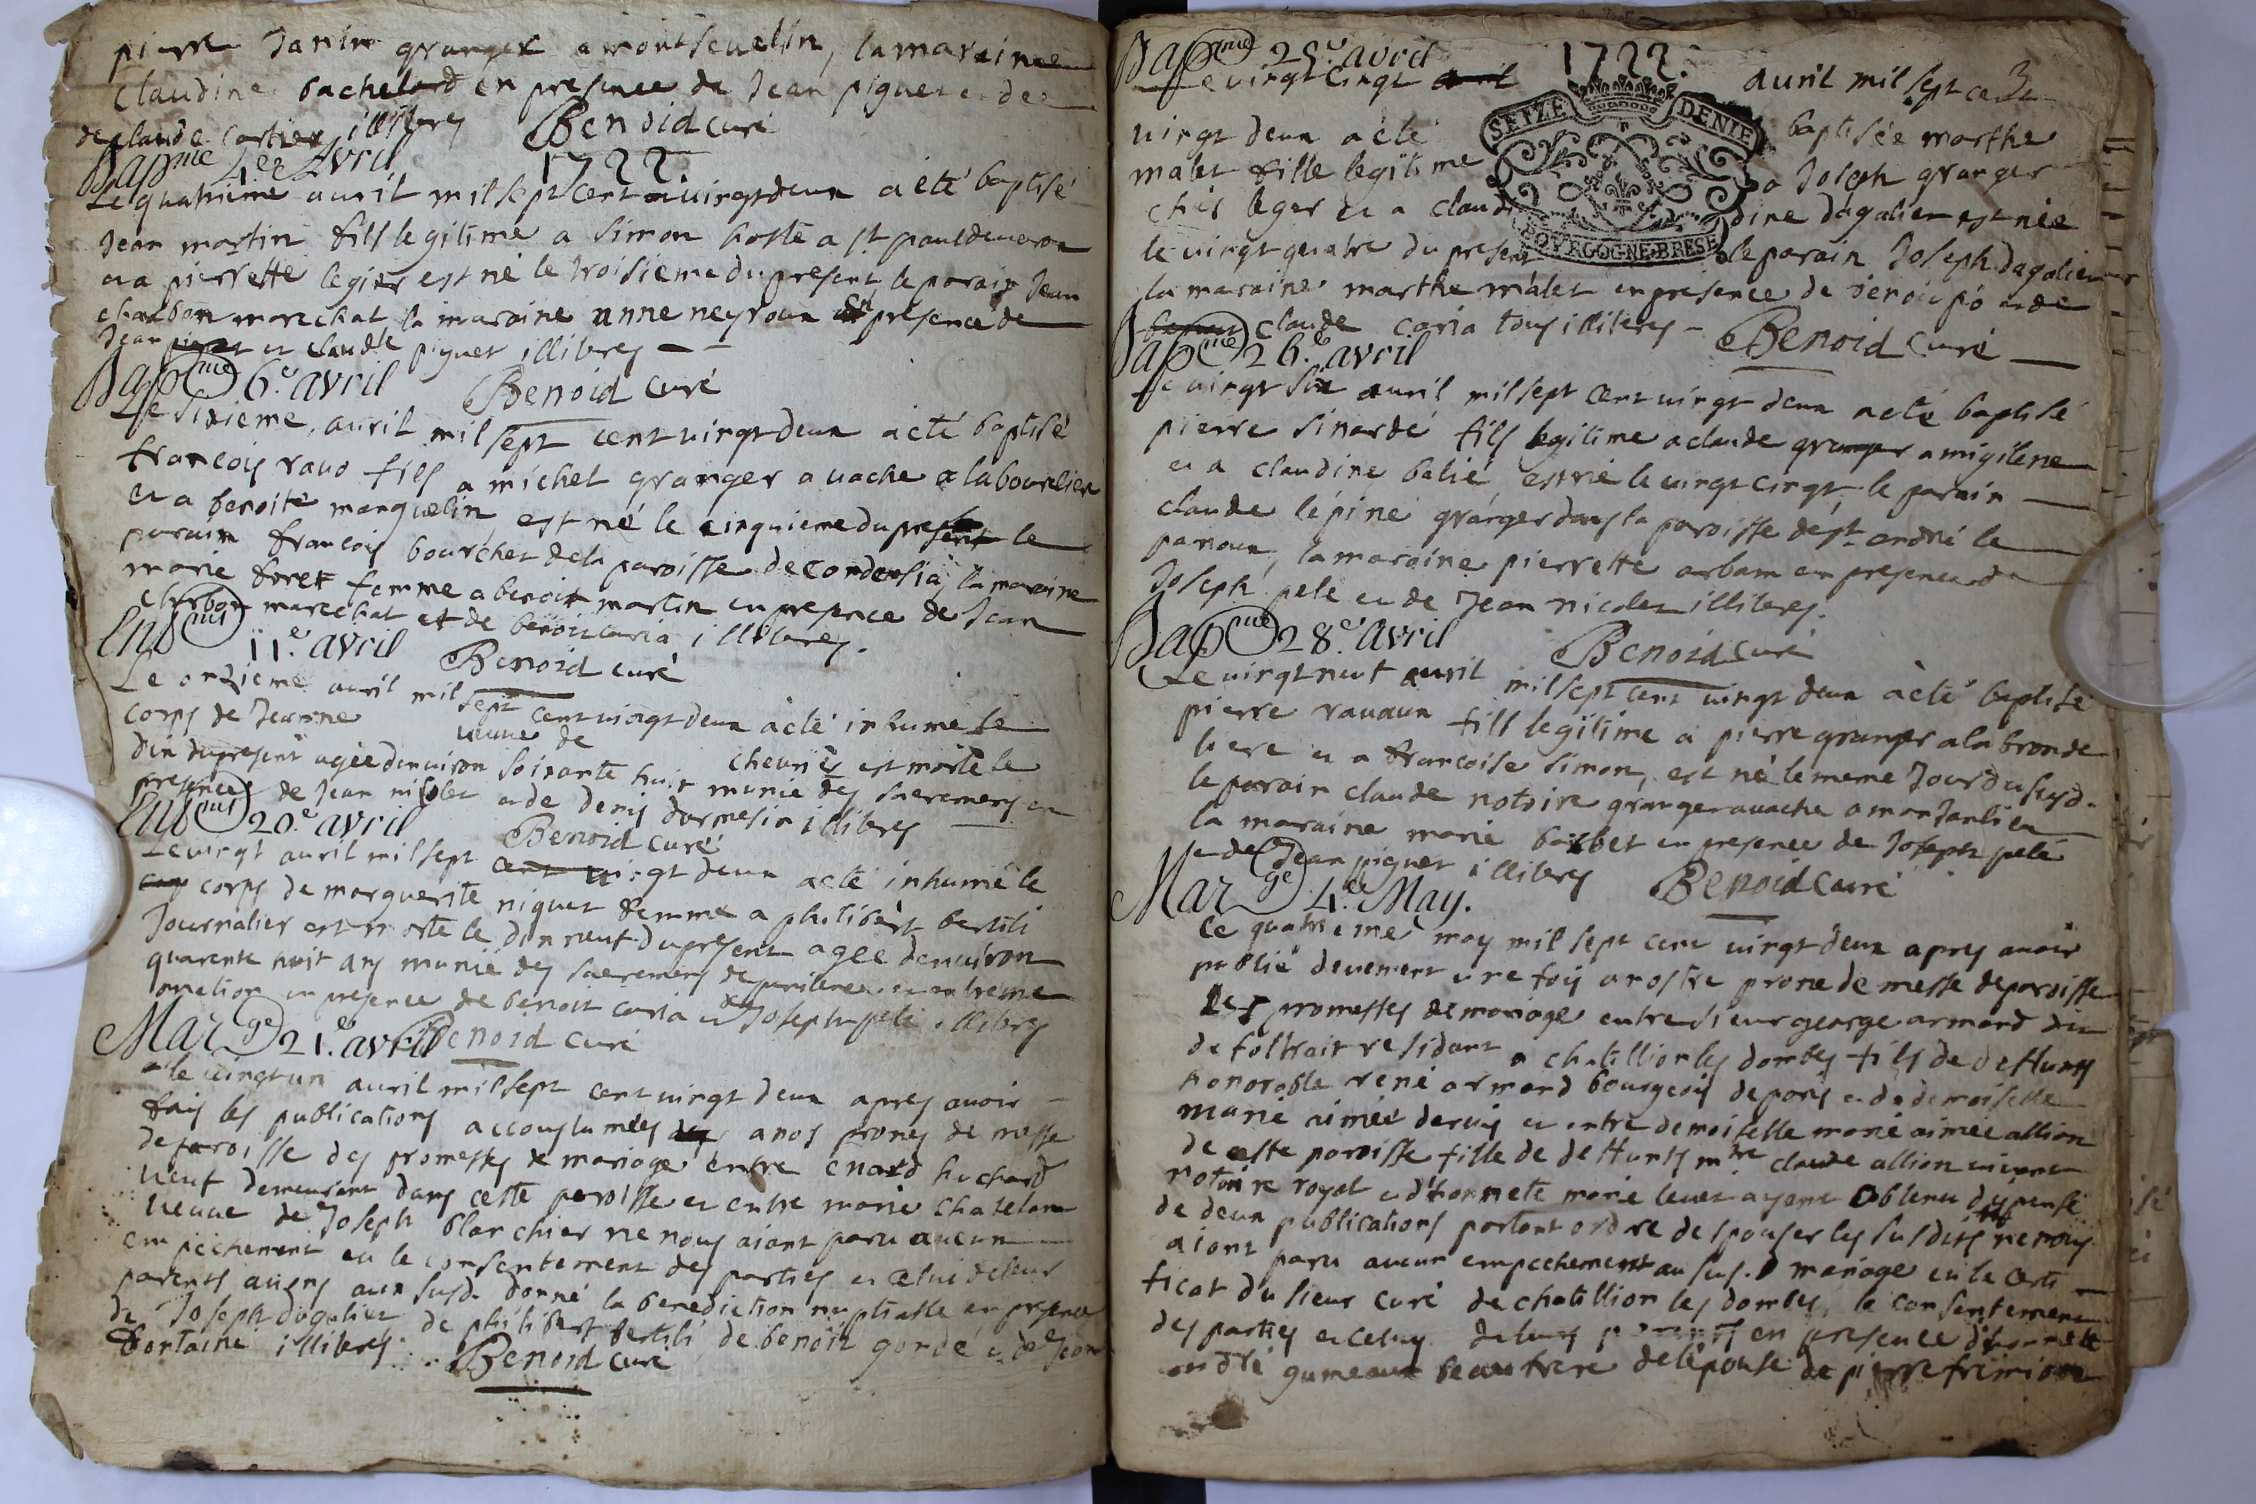 pierre Janin granger a montseuelin, la maraine
Claudine bachelard en presence de Jean piguet et de
de claude cartier illiteres Benoid curé
Bapme 4e Avril 1722.
Le quatrieme auril mil sept cent vingt deux a eté baptisé
Jean martin fils legitime a simon hoste a st paul deuaron
et a pierrette legier est né le troisieme du present le parain Jean
charbon marechal la maraine anne neyroux en presence de
Jean et claude piguet illiteres
Bapme 6e avril Benoid curé
Le sixieme auril mil sept cent vingt deux a eté baptisé
francois raud fils a michel granger a uache a la bourliere
et a benoite manguelin est né le cinquieme du present le
parain francois bourchet de la paroisse de condensia, la maraine
marie foret femme a benoit martin en presence de Jean
charbon marechal et de benoit caria illiteres.
11e avril Benoid curé
Le onzieme auril mil sept cent vingt deux a eté inhumé le
corps de Jeanne ueuue de cheuries est morte le
dix du present agée denuiron soixante huit munie des sacremens en
presence de Jean nicolet et de denis dormesin illiteres
20e avril Benoid curé
Le vingt auril mil sept cent vingt deux a eté inhumé le
corps de marguerite niguet femme a philibert bertili
Journalier est morte le dix neuf du present agée denuiron
quarente huit ans munie des sacremens de penitence et extreme
onction en presence de benoit caria et de Joseph pelé illiteres
Marge 21e avril Benoid curé
le vingt un auril mil sept cent vingt deux apres avoir
fais les publications accoustumées a nos prones de messe
de paroisse des promesses de mariage entre enard huchard
ueuf demeurant dans cette paroisse et entre marie chatelard
ueuue de Joseph blanchier ne nous aiant paru aucun
empechement eu le consentement des parties et celui de leurs
parents auons aux susd. donné la benediction nuptialle en presence
de Joseph dagalier de philibert bertili de benoit gordé et de Jean
fontaine illiteres. Benoid curé
Bapme 25e avril 1722.
Le vingt cinqt auril mil sept cent
vingt deux a eté baptisée marthe
malet fille legitime a Joseph granger
chés leger et a claudine dagalier est née
SEIZE DENIE
BOVRGOGNE BRESE
le vingt quatre du present le parain Joseph dagalier
la maraine marthe malet en presence de benoit pó et de
claude caria tous illiteres Benoid curé
Bapme 26e avril
Le vingt six auril mil sept cent vingt deux a eté baptisé
pierre sinardé fils legitime a claude granger a migilene
et a claudine balié, est né le vingt cinqt, le parain
claude lépine granger dans la paroisse de st andré le
panoux, la maraine pierrette arban en presence de
Joseph pelé et de Jean nicolet illiteres.
Bapme 28e avril Benoid curé
Le vingt neuf auril mil sept cent vingt deux a eté baptisé
pierre rauaux fils legitime a pierre granger a la bronde
liere et a francoise simon, est né le meme Jour du susd.
le parain claude notaire granger a uache a montanlier
la maraine marie barbet en presence de Joseph pelé
et de Jean piguet illiteres Benoid curé
Marge 4e May.
Le quatrieme may mil sept cent vingt deux apres auoir
publié deuement une fois a nostre prone de messe de paroisse
les promesses de mariage entre sieur george armand dit
de foltrait residant a chatillion les dombes fils de deffunts
honorable rené armand bourgeois de paris et de demoiselle
marie aimée deruis et entre demoiselle marie aimée allion
de cette paroisse fille de deffunts mtre claude allion uiuant
notaire royal et d'honnete marie leuet ayant obtenu dispense
de deux publications portant ordre despouser les susdits ne nous
aiant paru aucun empechement au sus.d mariage eu le certi
ficat du sieur curé de chatillion les dombes, le consentement
des parties et celuy de leurs parents en presence d'honnete
andré gumeaux beaufrere de l'épouse de pierre frimion